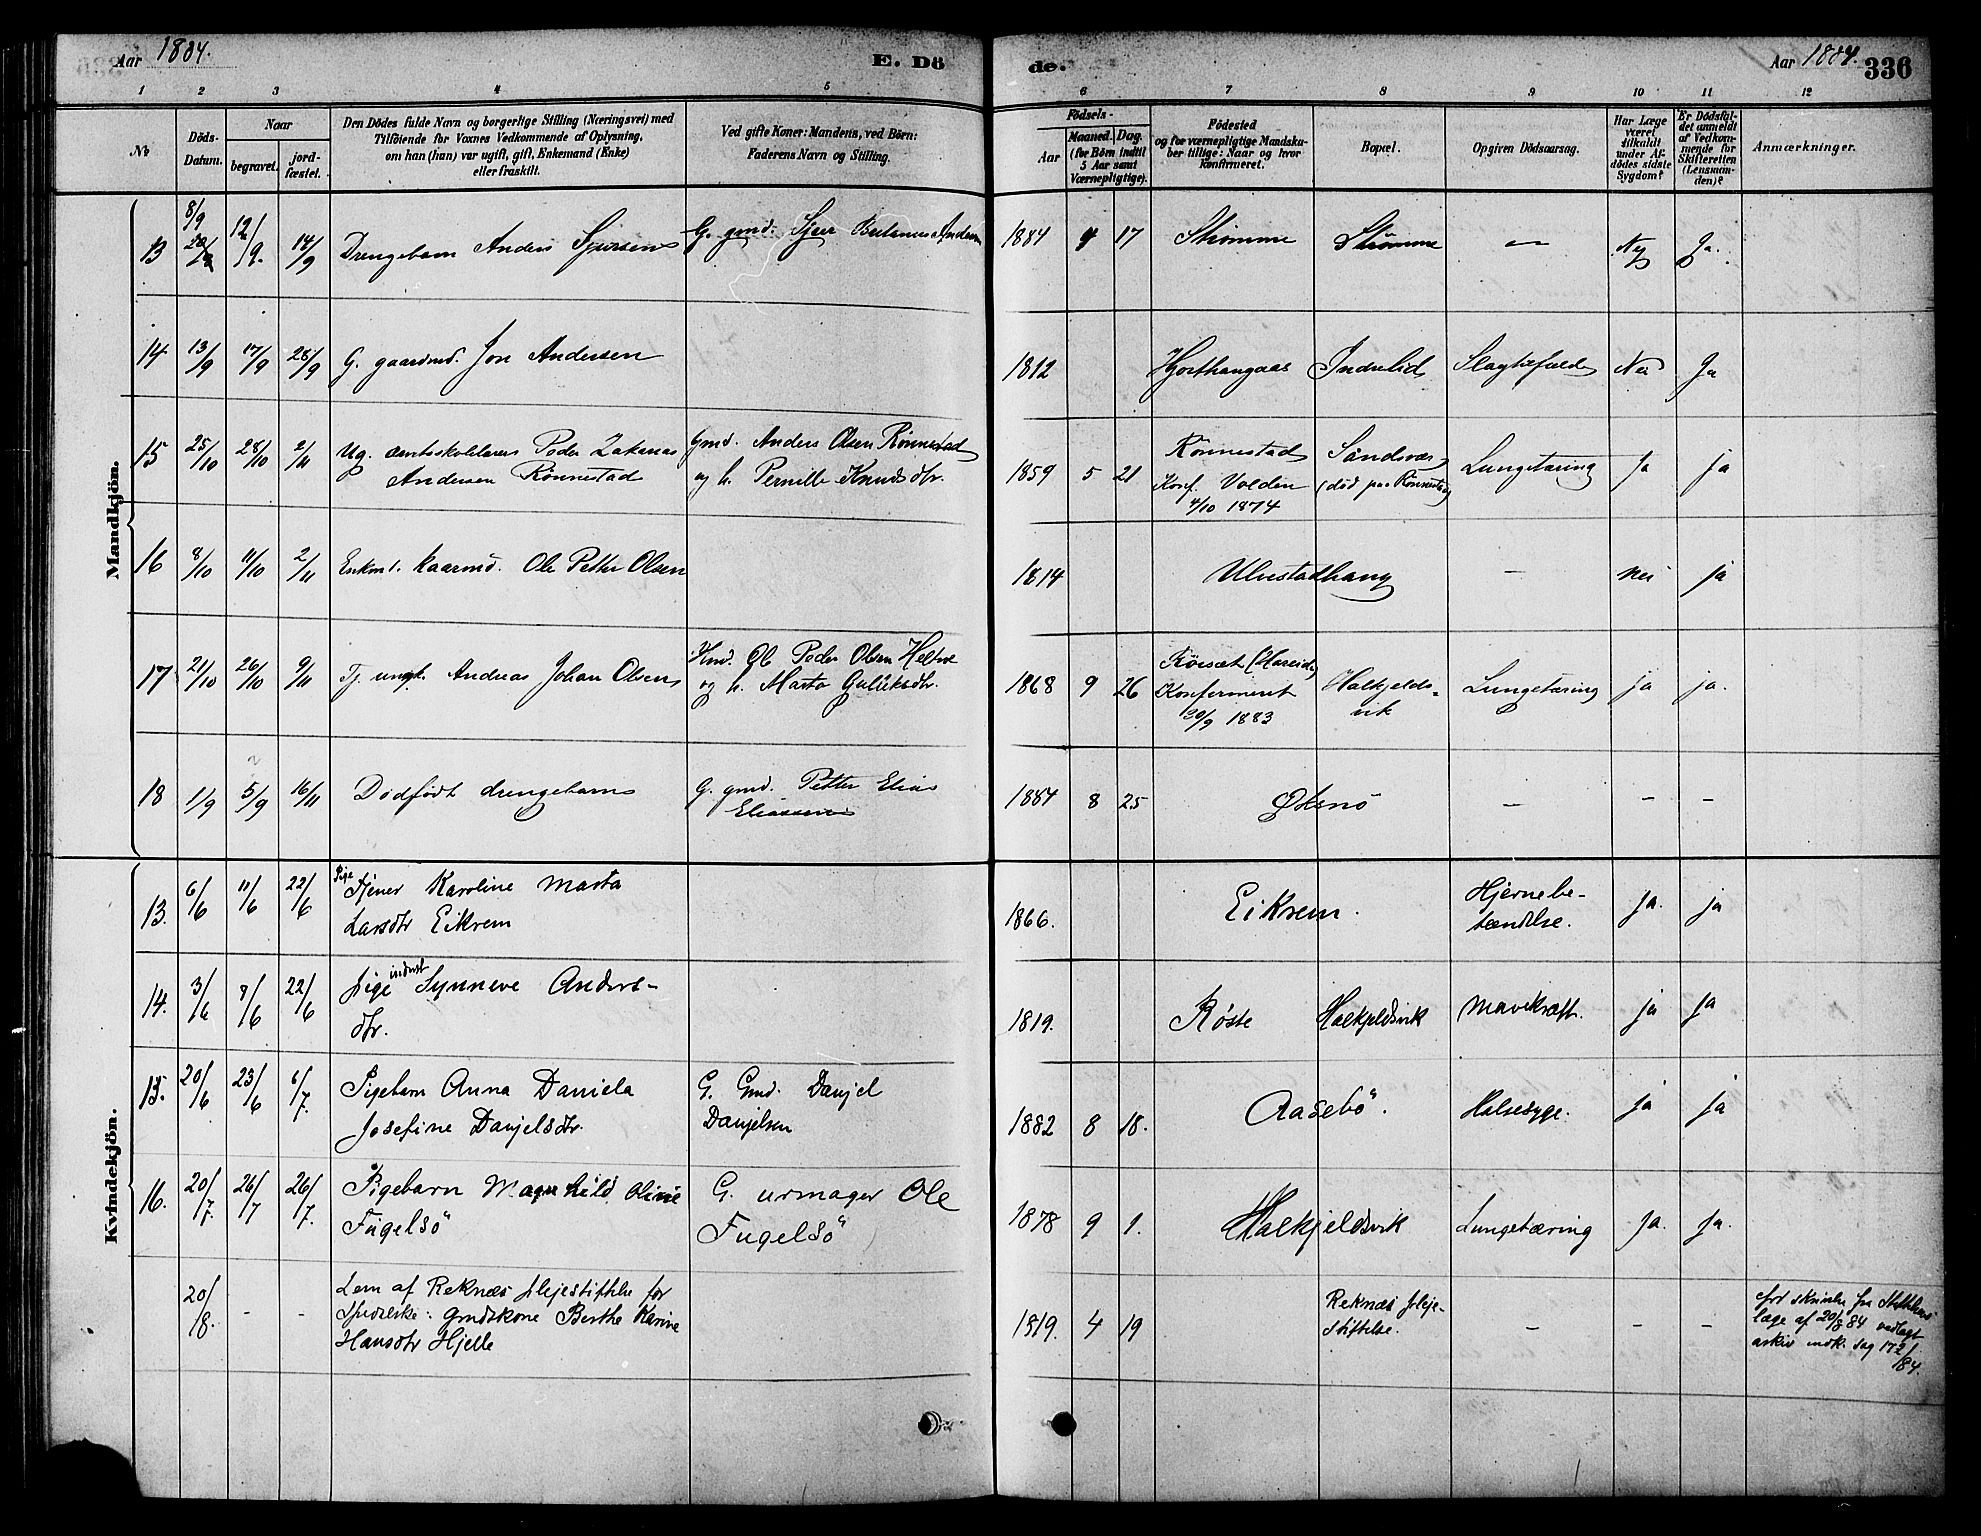 Aar 1884.
E. Dö
de.
Aar 1884.
336
1 2 3 4 5 6 7 8 9 10 11 12
No
Döds-
Datum.
Naar
begravet.
jord-
fæstet.
Den Dödes fulde Navn og borgerlige Stilling (Næringsvei) med
Tilföiende for Voxnes Vedkommende af Oplysning,
om han (hun) var ugift, gift, Enkemand (Enke)
eller fraskilt.
Ved gifte Koner: Mandens, ved Börn:
Faderens Navn og Stilling.
Födsels-
Aar
Maaned. Dag.
(for Börn indtil
5 Aar samt
Værnepligtige).
Födested
og for værnepligtige Mandska-
ber tillige: Naar og hvor
konfirmeret.
Bopæl.
Opgiven Dödsaarsag.
Har Læge
været
tilkaldt
under Af-
dödes sidste
Sygdom?
Er Dödsfal-
det anmeldt
af Vedkom-
mende for
Skifteretten
(Lensman-
den)?
Anmærkninger.
Mandkjön.
13 8/9 12/9. 14/9 Drengebarn Anders Sjursen G. gmd. Sjur Andersen 1884 4 17 Strømme Strømme — Nej Ja.
14 13/9 17/9 28/9 G. gaardmd. Jon Andersen 1812 Hjorthaugaas Indrelid Nei Ja
15 25/10 28/10 2/11 Ug. amtsskolelærer Peder Zakarias
Andersen Rönnestad
Gmd. Anders Olsen Rönnestad
og h. Pernille Knudsdtr.
1859 5 21
Rönnestad
Konf. Volden
4/10 1874
Sandsvær
(död paa Rönnestad)
Lungetæring Ja ja
16 8/10 11/10 2/11 Enkem. kaarmd. Ole Petter Olsen 1814 Ulvestadhaug — nei ja
17 21/10 26/10 9/11 Tj. ungk. Andreas Johan Olsen
Hmd. Ole Peder Olsen
og h. Marta
1868 9 26
Rörsæt (Hareid)
Konfirmeret
30/9 1883
Halkjelds-
vik
Lungetæring ja ja.
18 1/9 5/9 16/11 Dödfödt drengebarn
G. gmd. Petter Elias
Eliassen
1884 8 25 — — —
Kvindekjön.
13. 6/6 11/6 22/6 Pige Tjener Karoline Marta
Larsdtr Eikrem
1866. Eikrem.
Hjernebe-
tændelse.
ja. ja
14. 3/6 8/6 22/6 Pige inderst Synneve Anders-
dtr.
1819. Røste Halkjeldsvik Mavekræft. ja ja
15. 20/6 23/6 6/7. Pigebarn Anna Daniela
Josefine Danjelsdtr.
G. Gmd. Danjel
Danjelsen
1882 8 18. Aasebö. Halssyge. ja ja
16. 20/7. 26/7 26/7. Pigebarn Magnhild Oline
Fugelsö
G. urmager Ole
Fugelsö
1878 9 1. Halkjeldsvik Lungetæring Ja. Ja.
20/8. - - Lem af Reknæs plejestiftelse for
Spedalske: Gmdskone Berthe Karine
Hansdtr Hjelle
1819. 4 19
Reknæs pleje-
stiftelse.
— — —
skrivelse fra Stiftelsens
læge af 20/8 84 vedlagt
arkiv indk. sag 172/
184.